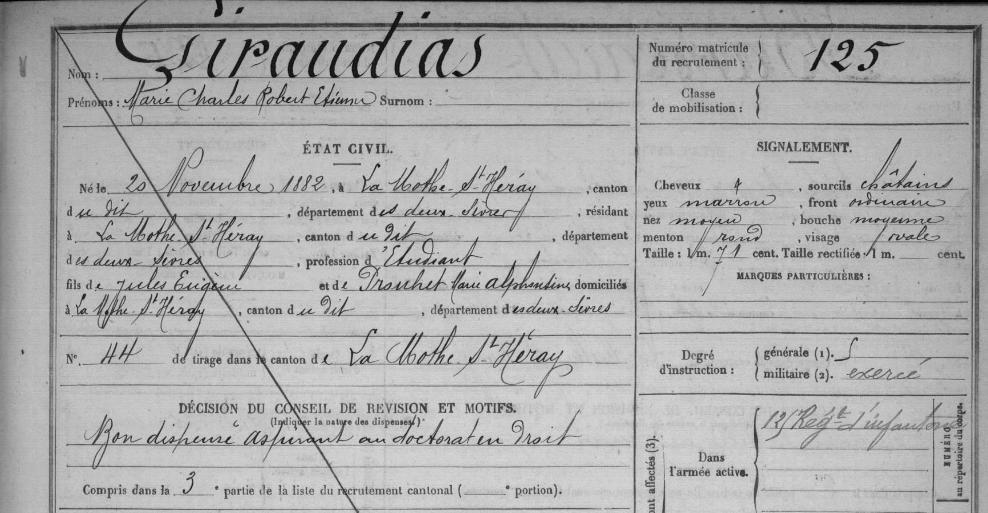 Nom : Giraudias
Prénoms : Marie Charles Robert Etienne Surnom :
ÉTAT CIVIL.
Né le 20 Novembre 1882, à La Mothe-St-Héray, canton
du dit, département des deux-Sèvres, résidant
à La Mothe-St-Héray, canton du dit, département
des deux-Sèvres, profession d'Etudiant
fils de Jules Eugène et de Prouhet Marie alphonsine, domiciliés
à La Mothe-St-Héray, canton du dit, département des deux-Sèvres
No. 44 de tirage dans le canton de La Mothe-St-Héray
DÉCISION DU CONSEIL DE REVISION ET MOTIFS.
(Indiquer la nature des dispenses.)
Bon dispensé aspirant au doctorat en Droit
Compris dans la 3e partie de la liste du recrutement cantonal ( e portion).
Numéro matricule
du recrutement : 125
Classe
de mobilisation :
SIGNALEMENT.
Cheveux et, sourcils châtains
yeux marron, front ordinaire
nez moyen, bouche moyenne
menton rond, visage ovale
Taille : 1 m. 71 cent. Taille rectifiée : 1 m. cent.
MARQUES PARTICULIÈRES :
Degré
d'instruction :
générale (1). 5
militaire (2). exercé
ont affectés (3).
Dans
l'armée active.
125 Régt d'infanterie
NUMÉRO
au répertoire du corps.